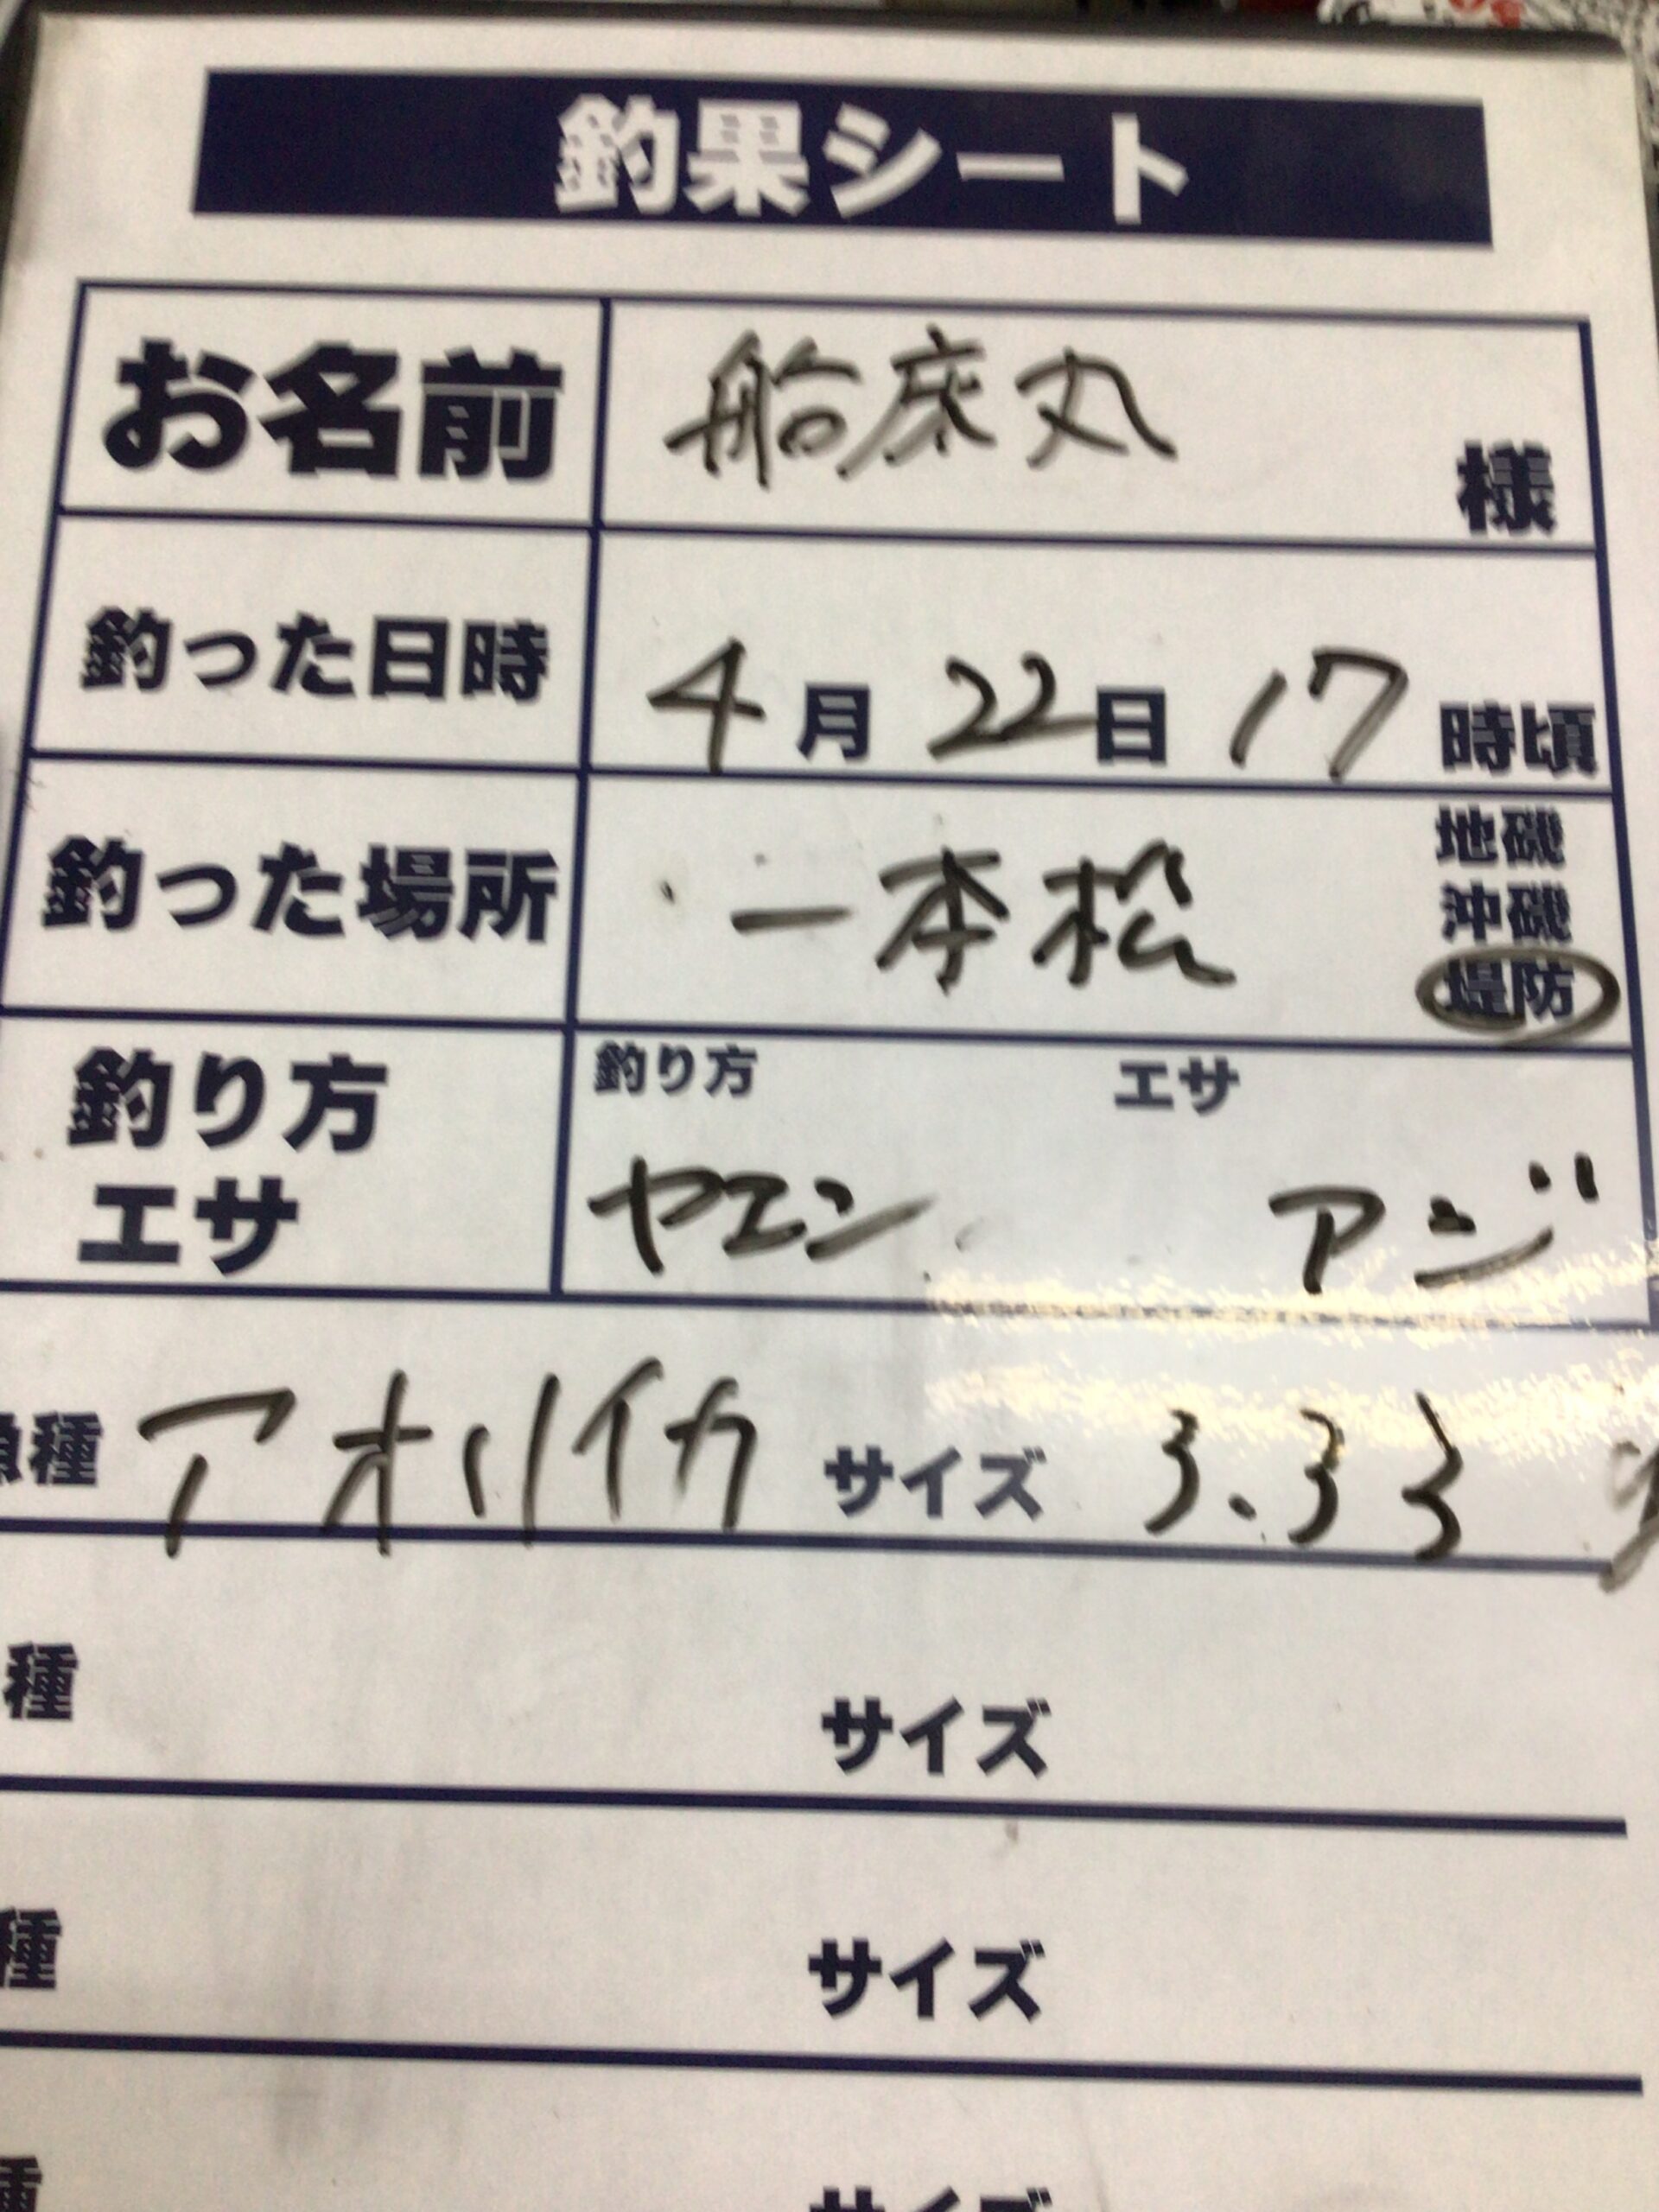 釣果シート
お名前 船床丸 様
釣った日時 4月22日17時頃
釣った場所 一本松 地磯 沖磯 堤防
釣り方 エサ
釣り方 エサ
ヤエン アジ
種 アオリイカ サイズ 3.33
種 サイズ
種 サイズ
種 サイズ